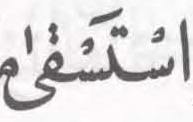 اسْتَسْقىٰ م